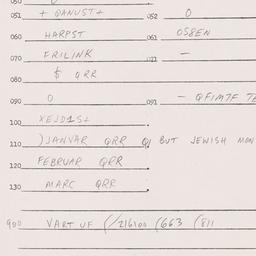 051 + QANUST+ 052 0
060 HARPST 061 OSBEN
070 FRILINK 071 -
080 $ QRR
090 0 091 - QFIM7F
100 XEJD1S+
110 )JANVAR QRR BUT JEWISH MON
120 FEBRUAR QRR
130 MARC QRR
900 VART UF (/216100 (663 (811